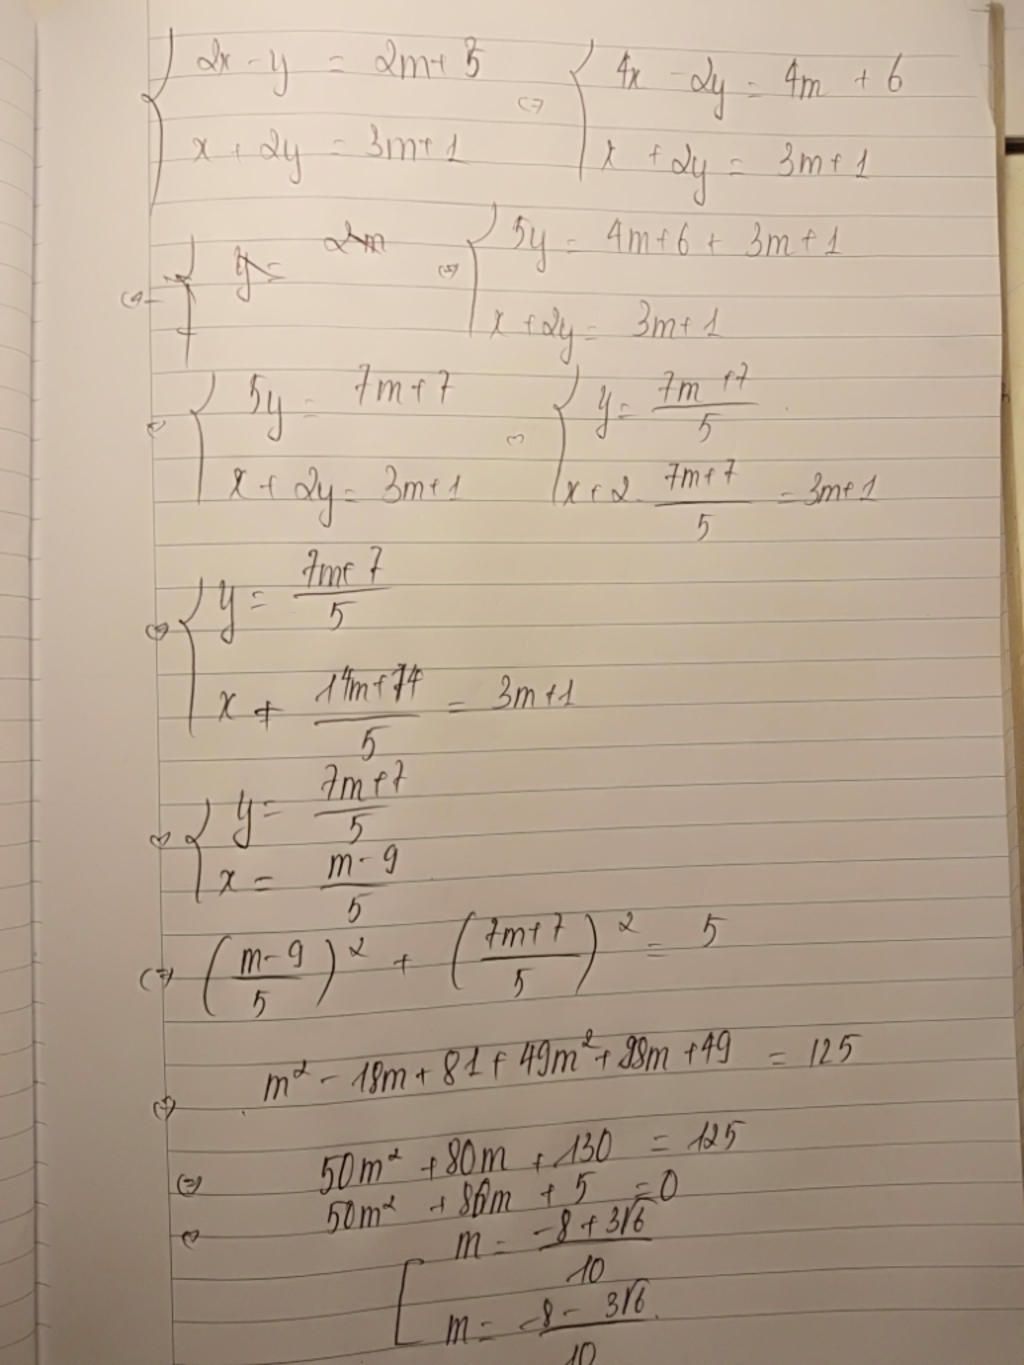 { 2x - y = 2m + 3 (=) { 4x - 2y = 4m + 6
x + 2y = 3m + 1    x + 2y = 3m + 1
(=) { y = 2m (=) { 5y = 4m + 6 + 3m + 1
x + 2y = 3m + 1
(=) { 5y = 7m + 7 (=) { y = (7m + 7)/5
x + 2y = 3m + 1    x + 2 . (7m + 7)/5 = 3m + 1
(=) { y = (7m + 7)/5
x + (14m + 14)/5 = 3m + 1
(=) { y = (7m + 7)/5
x = (m - 9)/5
(=) ((m - 9)/5)² + ((7m + 7)/5)² = 5
(=) m² - 18m + 81 + 49m² + 98m + 49 = 125
(=) 50m² + 80m + 130 = 125
(=) 50m² + 80m + 5 = 0
[ m = (-8 + 3√6)/10
m = (-8 - 3√6)/10